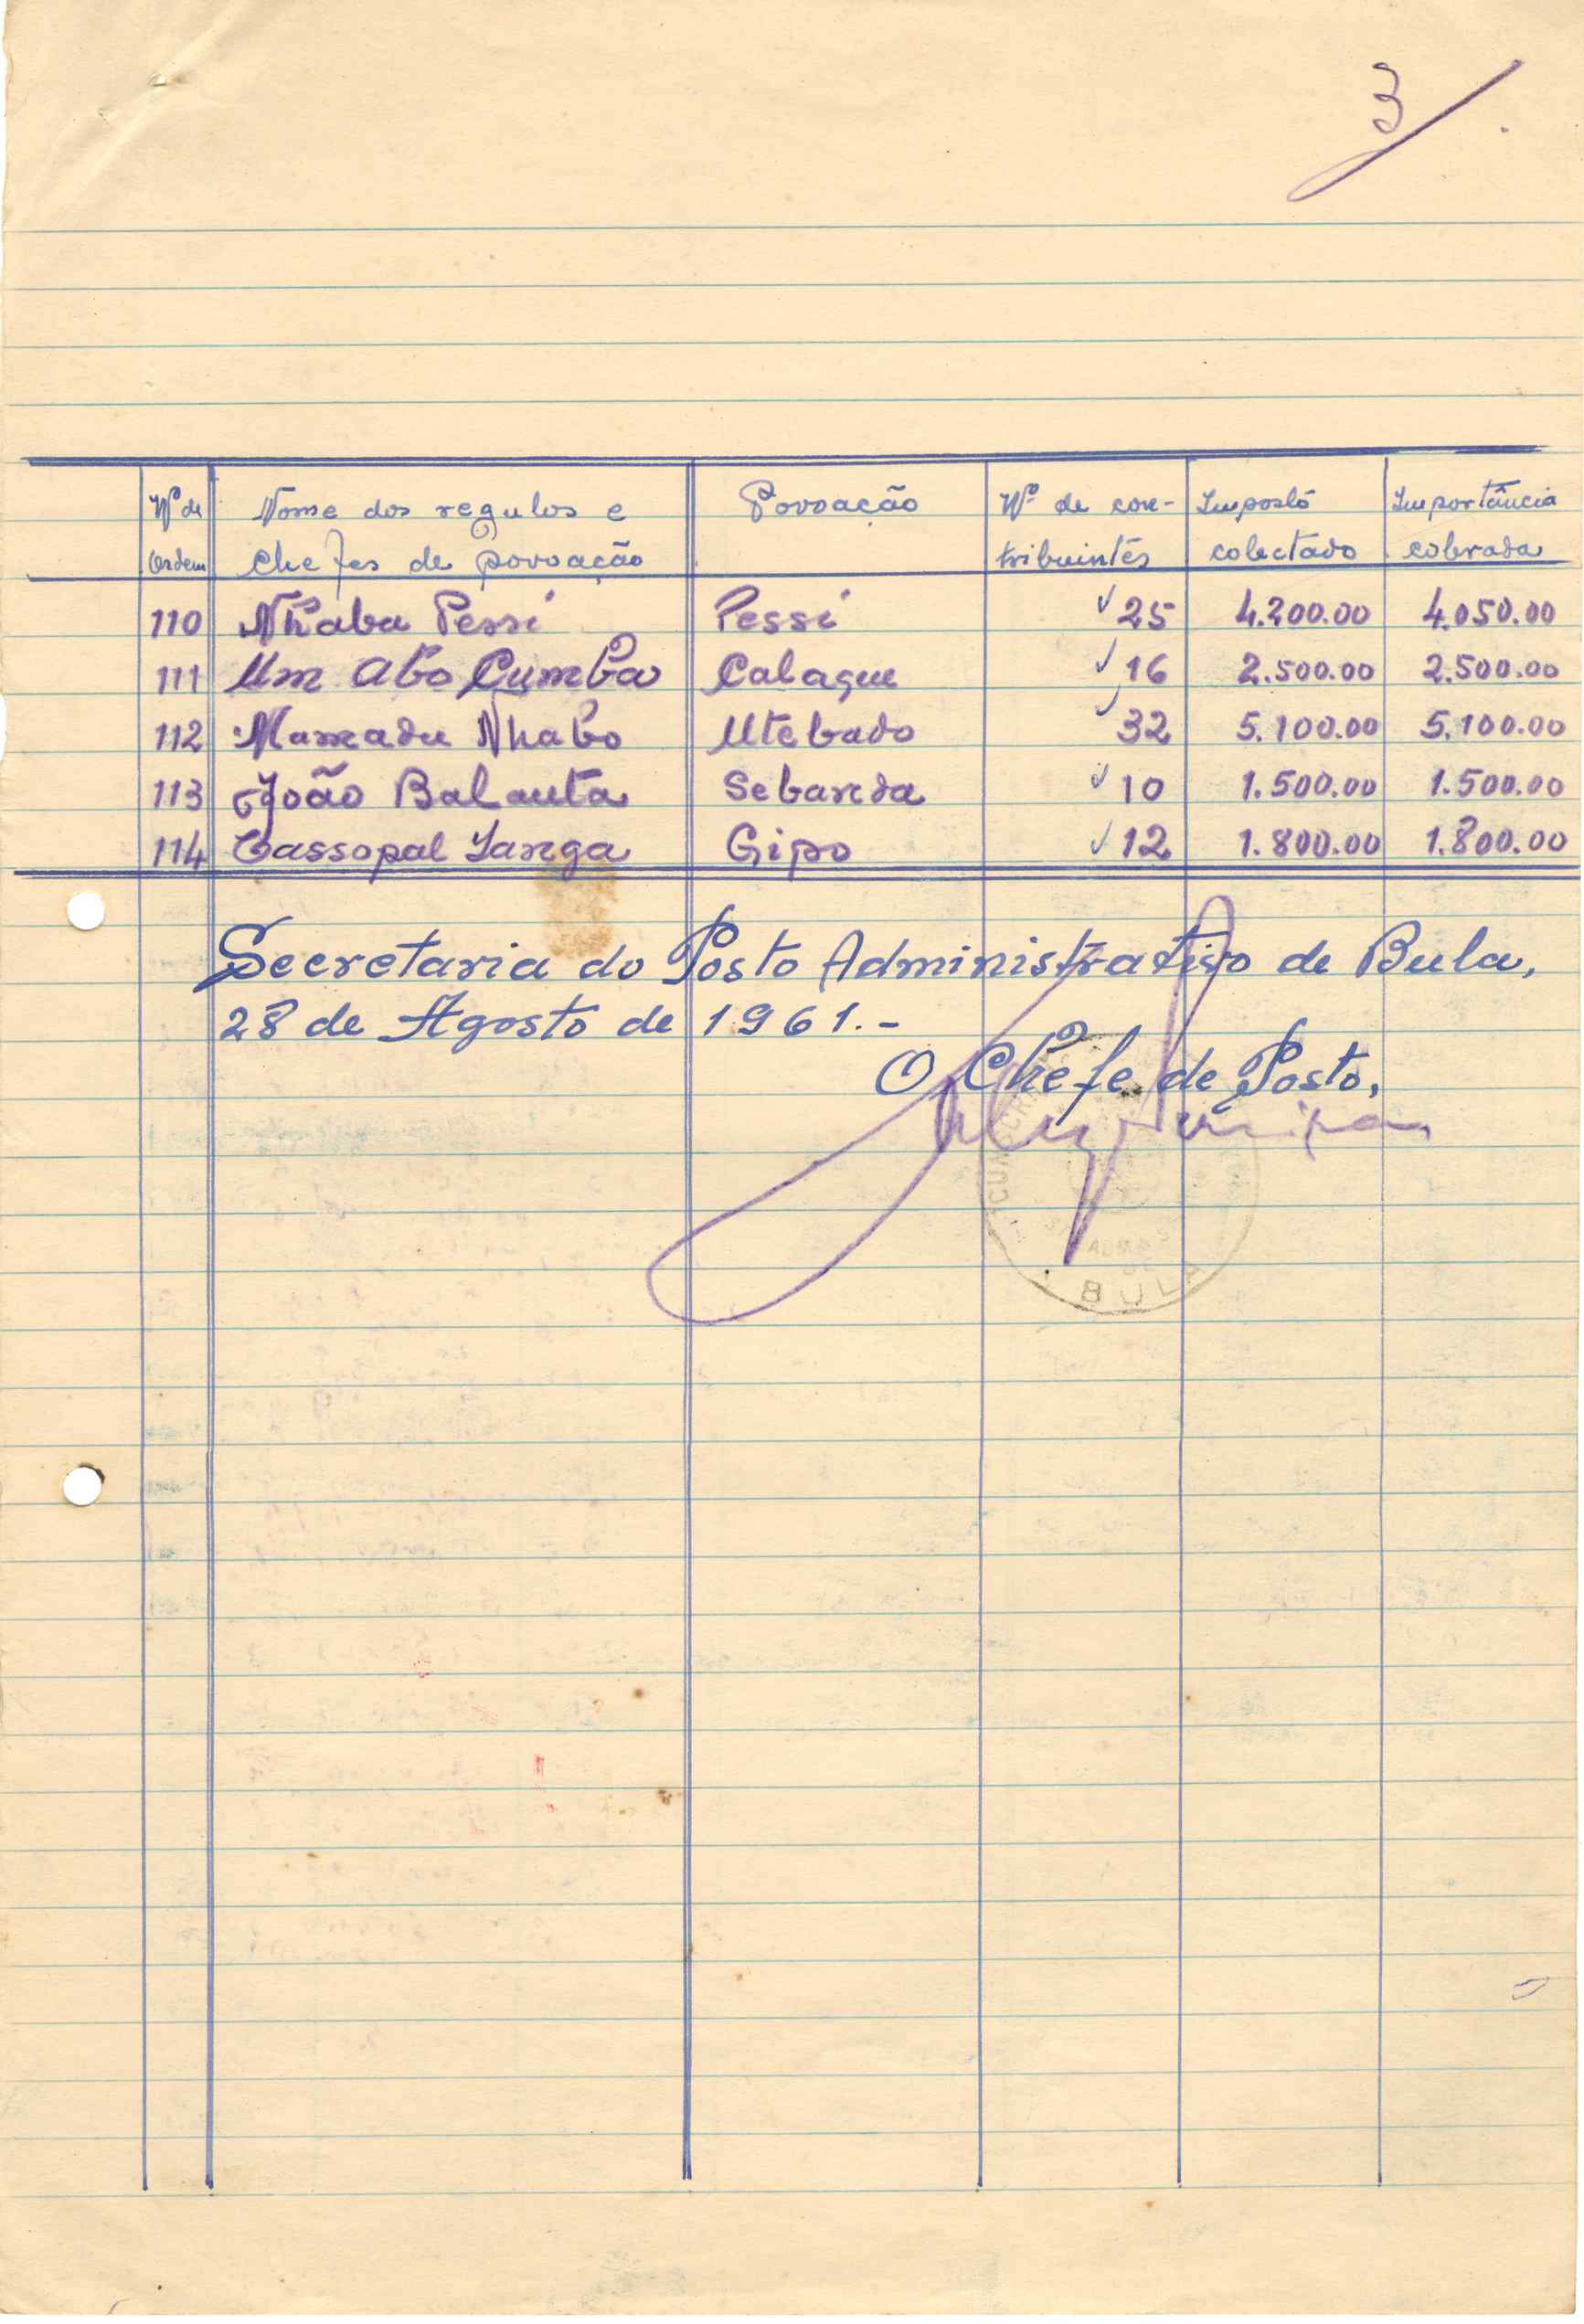 3
Nº de Nome dos regulos e Povoação Nº de con- Imposto Importância
Ordem chefes de povoação tribuintes colectado cobrada
110 Nhaba Pessi Pessi √ 25 4.200.00 4.050.00
111 Um Abo Cumba Calaque √ 16 2.500.00 2.500.00
112 Mamadu Nhabo Utebado √ 32 5.100.00 5.100.00
113 João Balanta Sebanda √ 10 1.500.00 1.500.00
114 Cassopal Ianga Gipo √ 12 1.800.00 1.800.00
Secretaria do Posto Administrativo de Bula,
28 de Agosto de 1961.-
O Chefe de Posto,
BULA